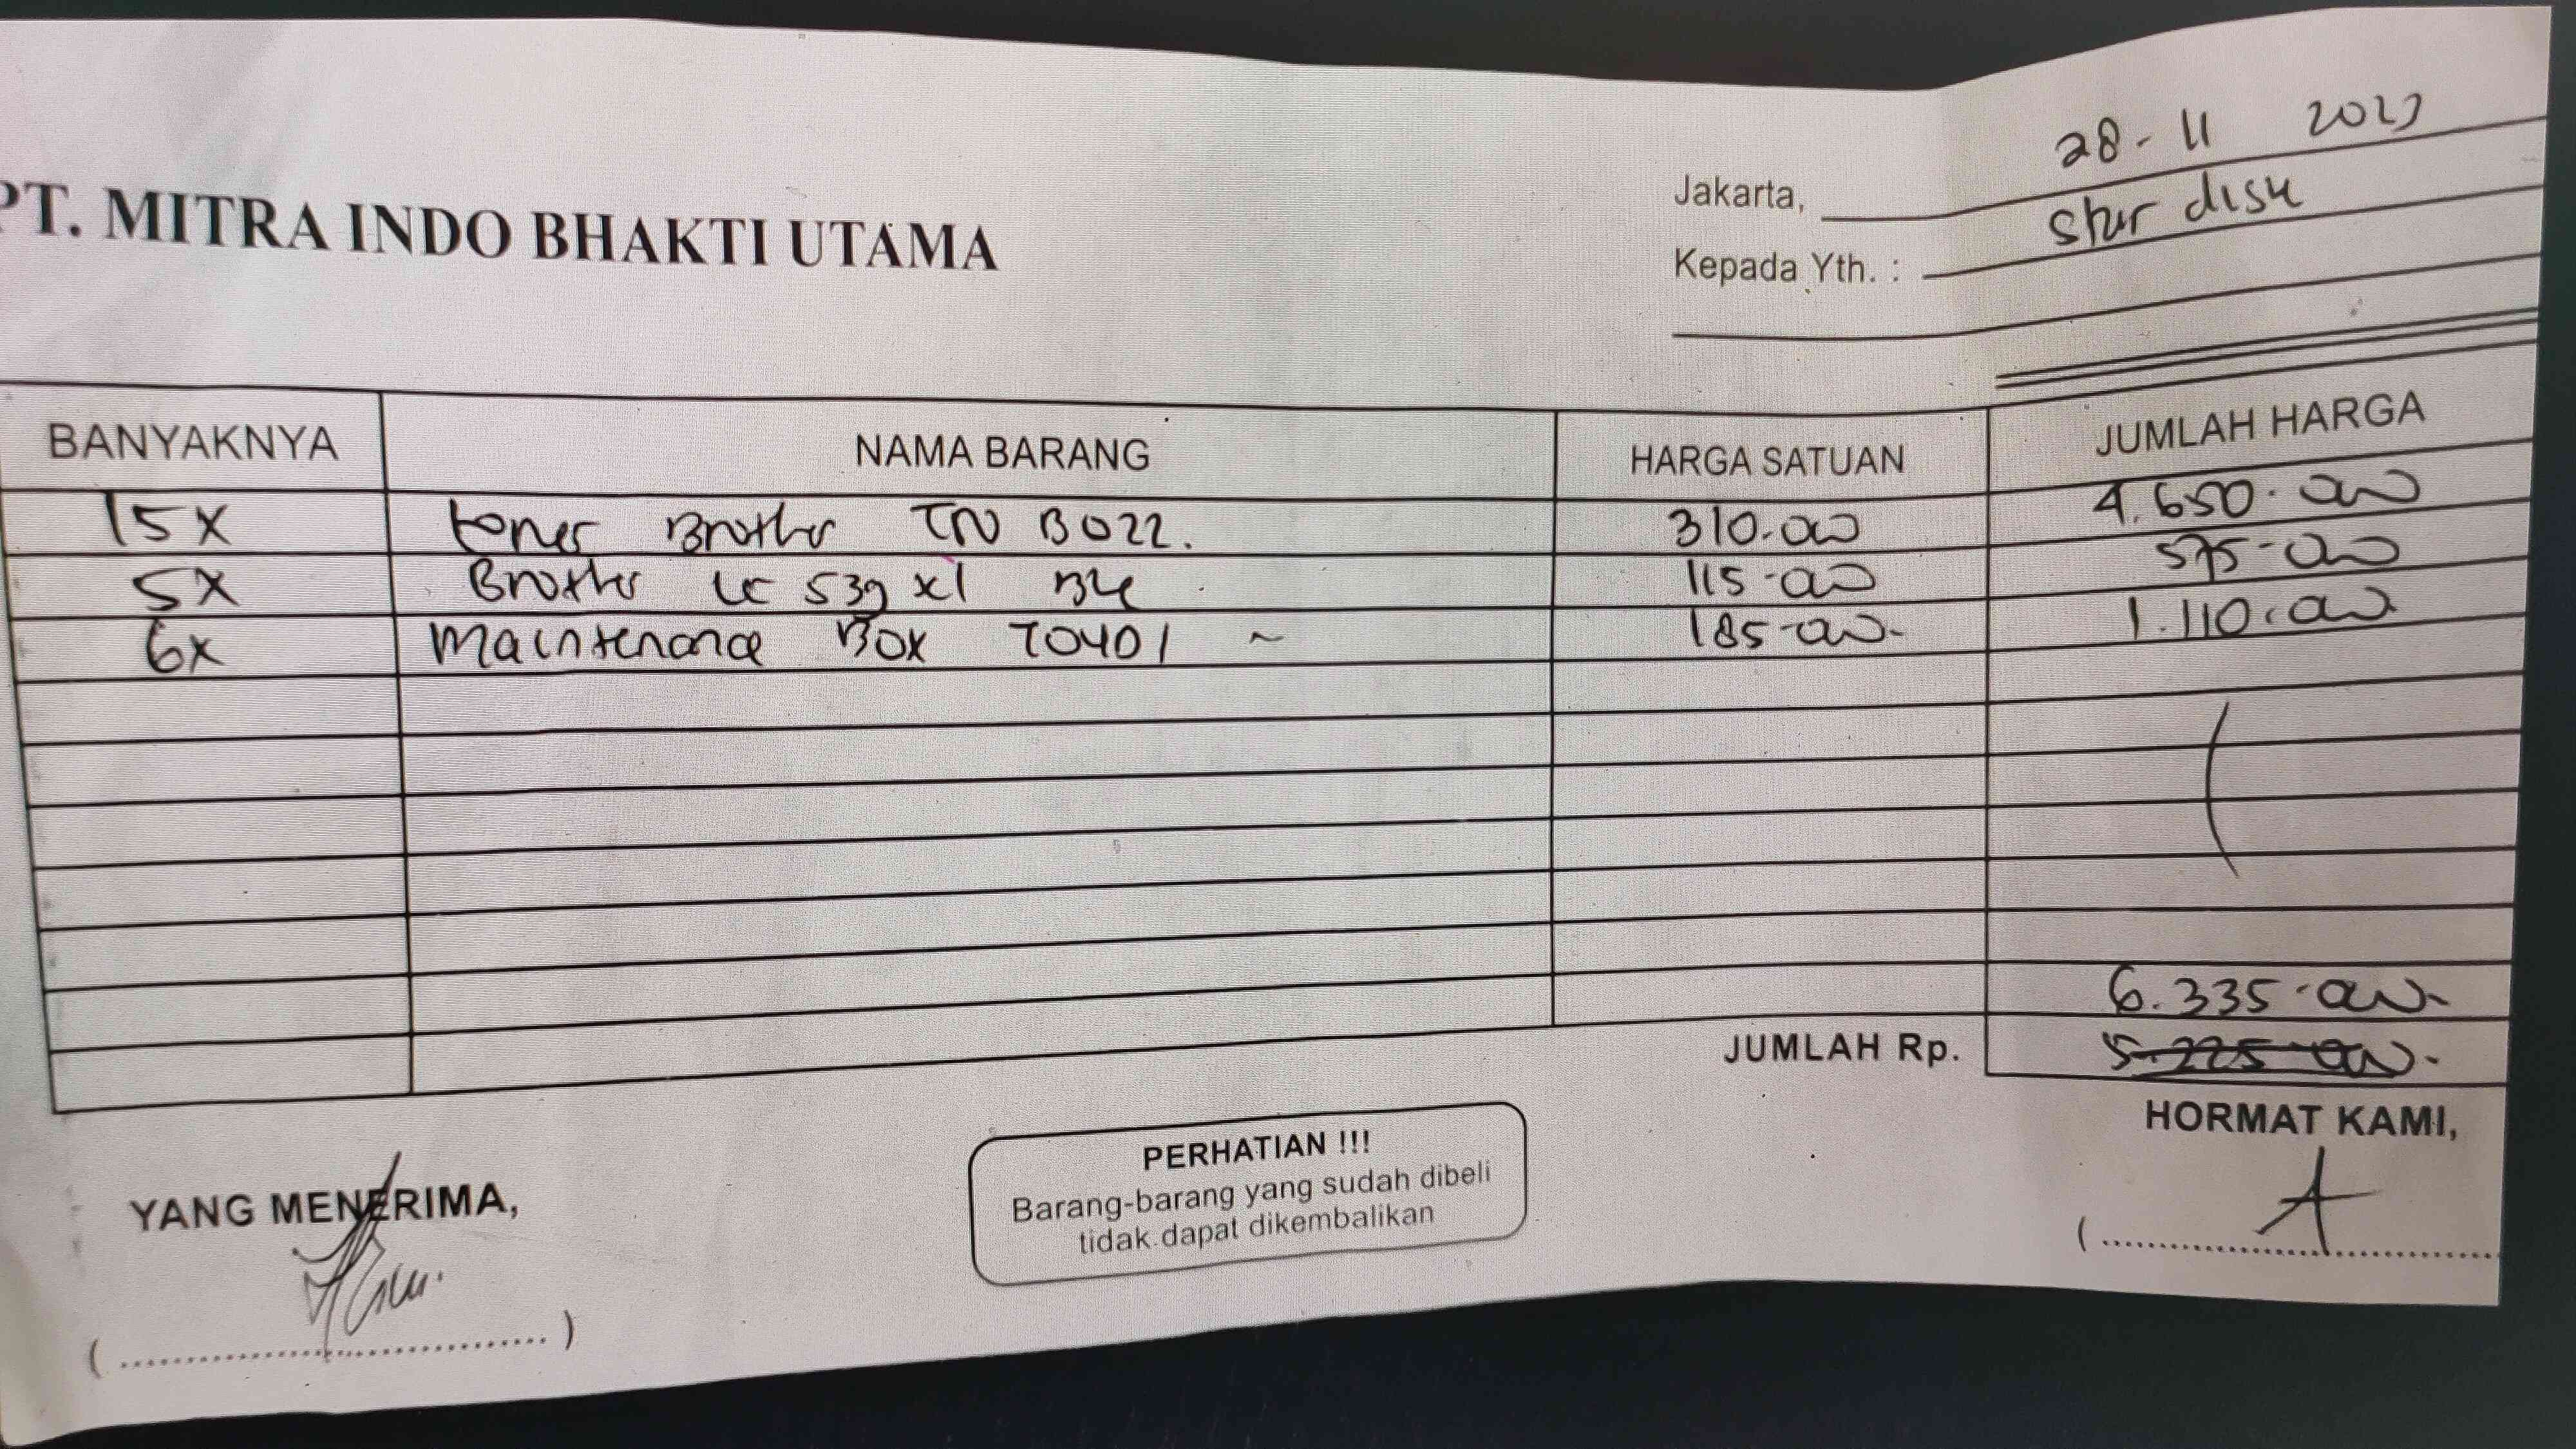 PT. MITRA INDO BHAKTI UTAMA
Jakarta, 28-11 2023
Kepada Yth. : Star disk
BANYAKNYA NAMA BARANG HARGA SATUAN JUMLAH HARGA
15x toner Brother TN B022. 310.000 4.650.000
5x Brother LC 539 xl Blk 115.000 575.000
6x Maintenance Box T0401 ~ 185.000- 1.110.000
6.335.000-
JUMLAH Rp. 5.225.000-
HORMAT KAMI,
YANG MENERIMA,
PERHATIAN !!!
Barang-barang yang sudah dibeli
tidak dapat dikembalikan